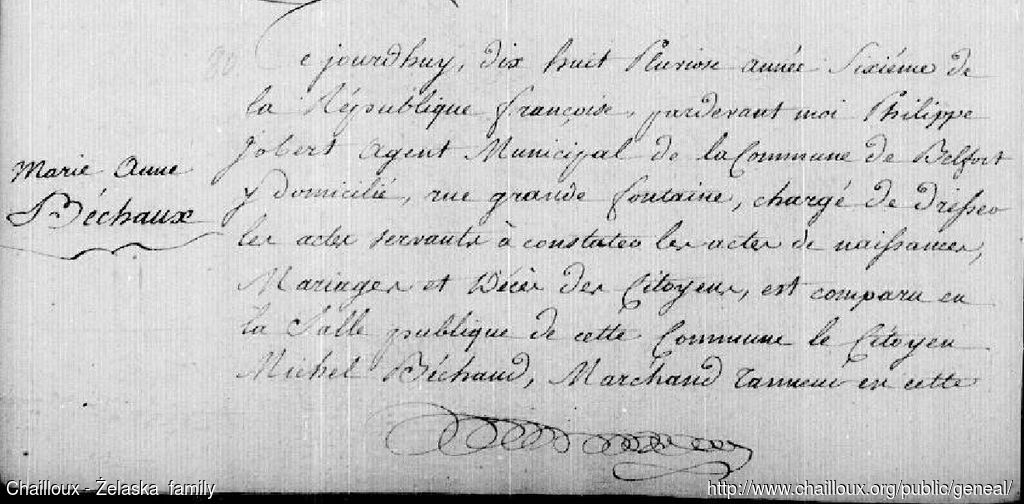 Marie Anne
Béchaux
80.
Ce jourdhuy, dix huit Pluviose année Sixiéme de
la République françoise, pardevant moi Philippe
Jobert Agent Municipal de la Commune de Belfort
y domicilié, rue grande fontaine, chargé de dresser
les actes servants à constater les actes de naissances,
Mariages et Décès des Citoyens, est comparu en
la Salle publique de cette Commune le Citoyen
Michel Béchaud, Marchand Tanneur en cette
Chailloux - Żelaska family
http://www.chailloux.org/public/geneal/